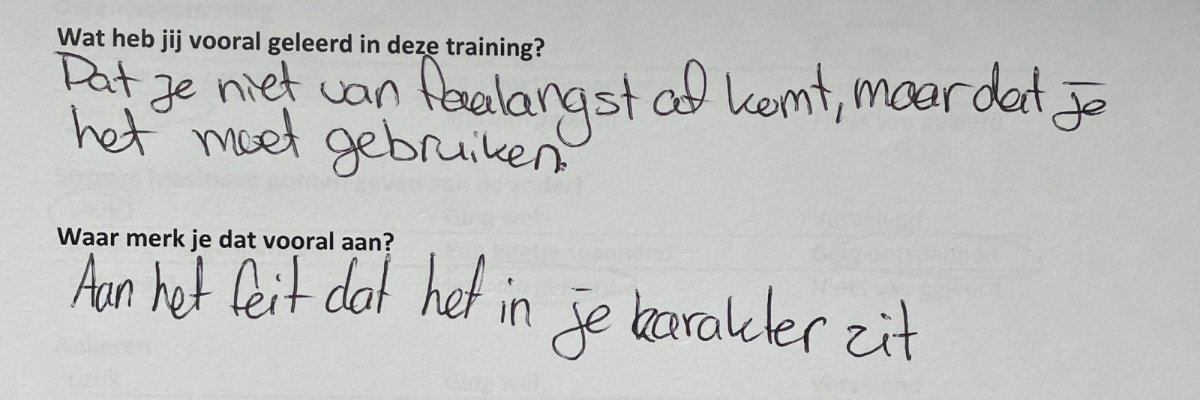 Wat heb jij vooral geleerd in deze training?
Dat je niet van faalangst af komt, maar dat je
het moet gebruiken.
Waar merk je dat vooral aan?
Aan het feit dat het in je karakter zit